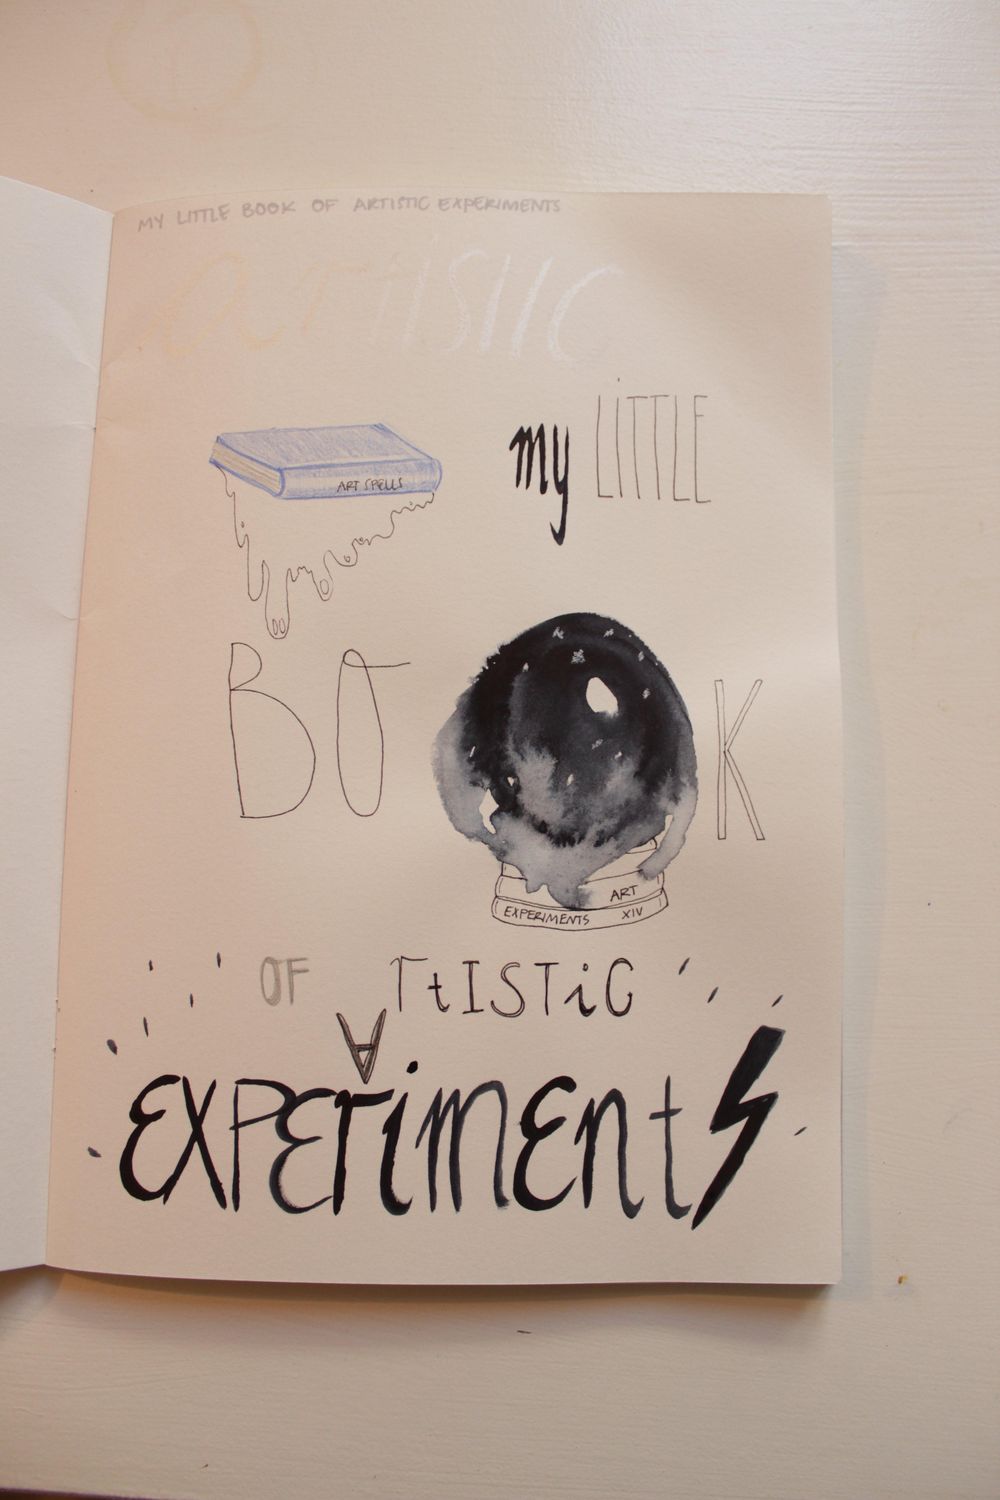 MY LITTLE BOOK OF ARTISTIC EXPERIMENTS
arTISTIC
ART SPELLS
my LiTTLE
BOOK
ART
EXPERIMENTS XIV
OF ∀rtISTiC
EXPErimEntS